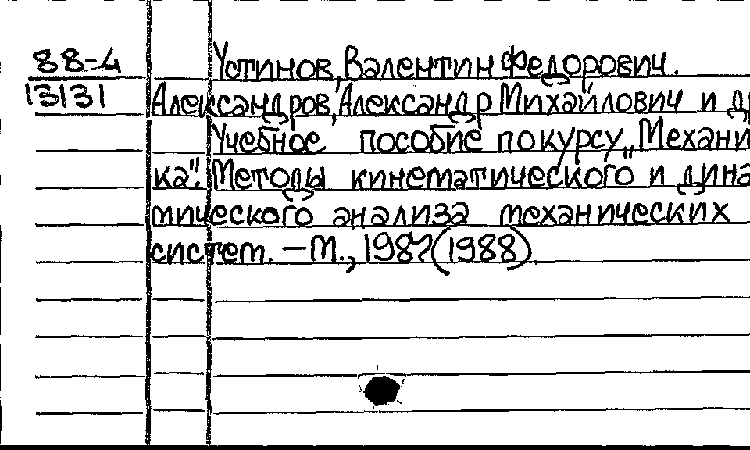 88-4 Устинов, Валентин Федорович.
13131 Александров, Александр Михайлович и др
Учебное пособие по курсу „Механи
ка". Методы кинематического и дина
мического анализа механических
систем. – М., 1987 (1988).